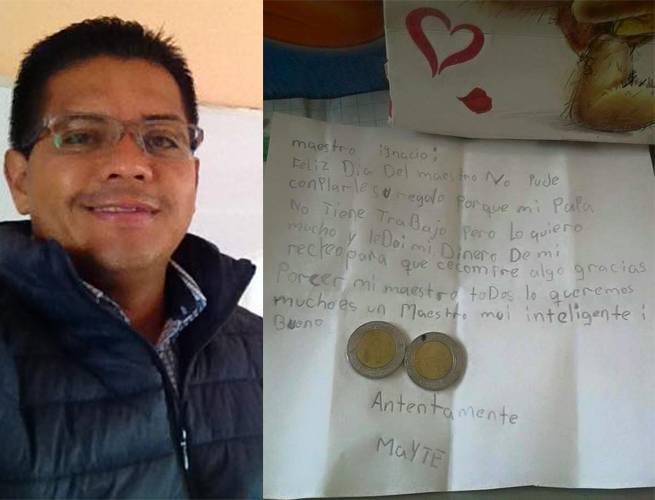 maestro ignacio;
Feliz Dia Del maestro No Pude
conPlarle su regalo Porque mi PaPa
No Tiene TraBajo Pero Lo quiero
mucho y leDoi mi Dinero De mi
recreo para que cecomPre algo gracias
Porcer mi maestro toDos lo queremos
muchoes un Maestro mui inteligente i
Bueno
Antentamente
MaYTE